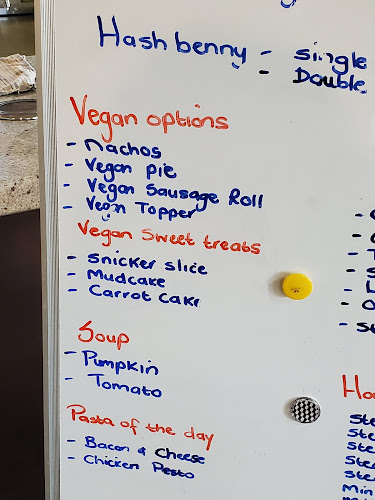 Hash benny - single
- Double
Vegan options
- Nachos
- Vegan pie
- Vegan Sausage Roll
- Vegan Topper
Vegan Sweet treats
- Snicker slice
- Mudcake
- Carrot cake
Soup
- Pumpkin
- Tomato
Pasta of the day
- Bacon & Cheese
- Chicken Pesto
Ho
Ste
Ste
Ste
Ste
Ste
Min